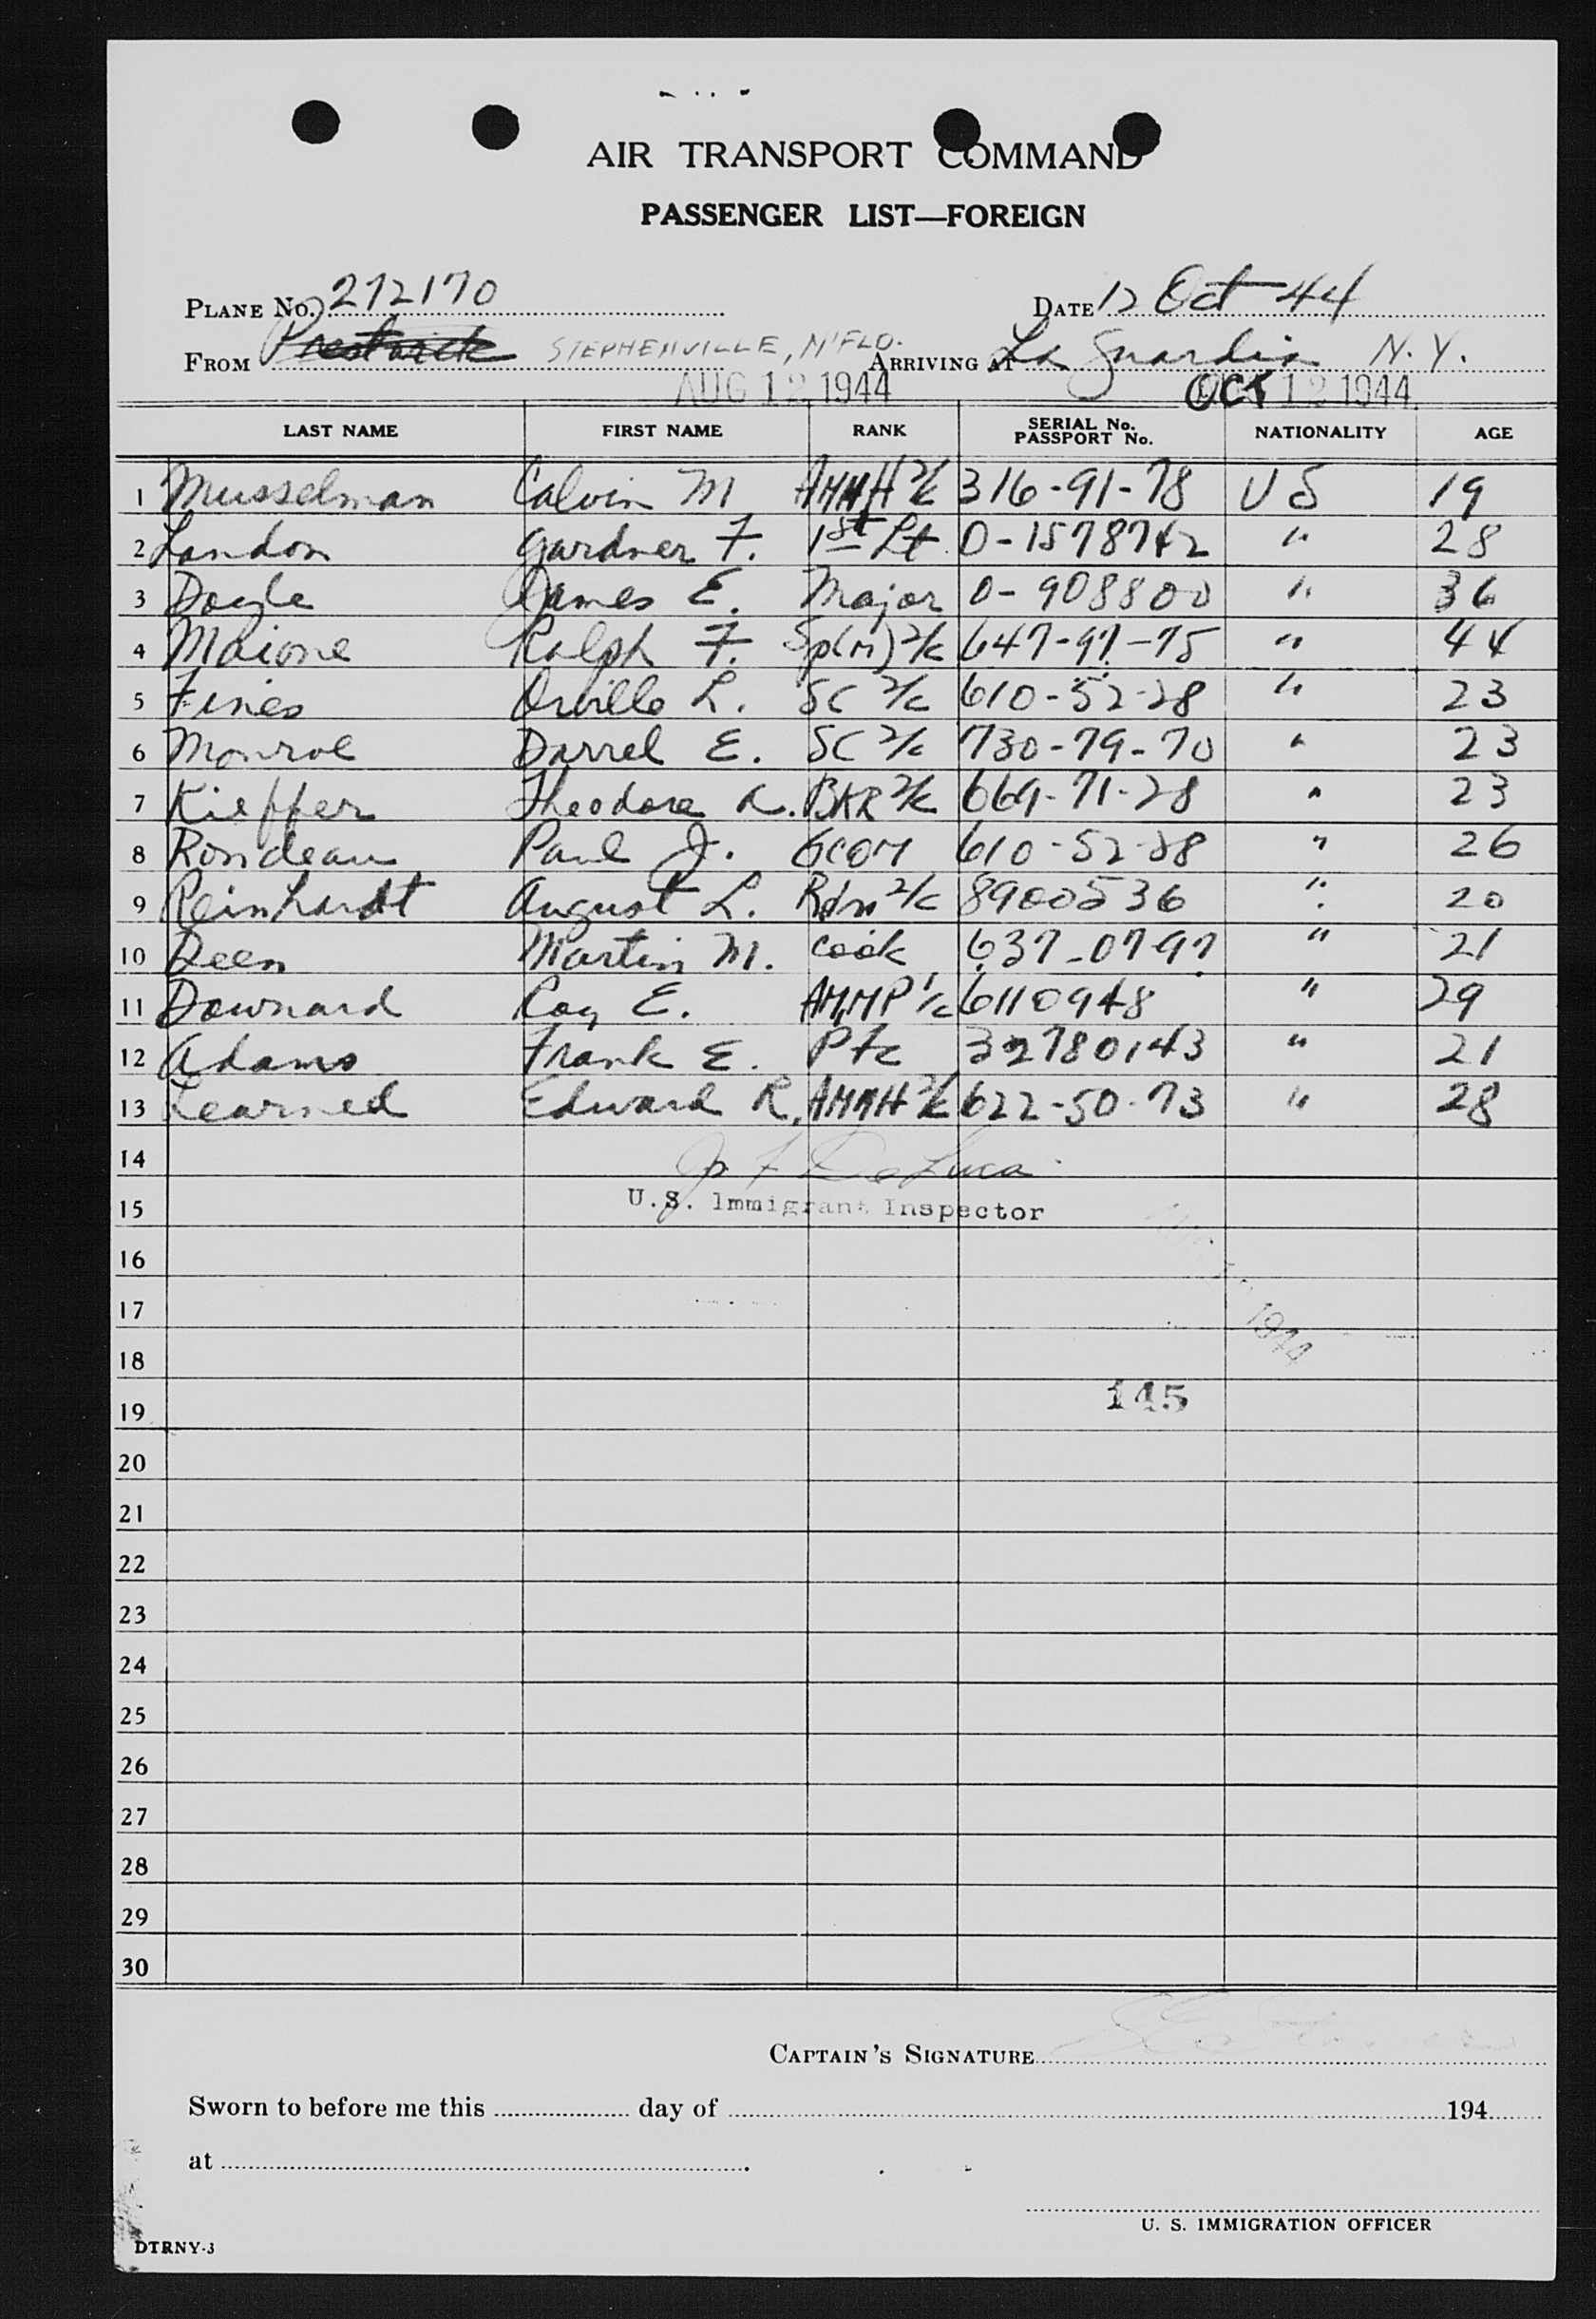 AIR TRANSPORT COMMAND
PASSENGER LIST—FOREIGN
PLANE No. 272170 DATE 12 Oct 44
FROM Prestwick STEPHENVILLE, N'FLD. ARRIVING AT La Guardia N.Y.
AUG 12 1944 OCT 12 1944
LAST NAME FIRST NAME RANK SERIAL No. PASSPORT No. NATIONALITY AGE
1 Musselman Calvin M AMMH 2/c 316-91-78 U S 19
2 Landon Gardner F. 1st Lt 0-1578742 " 28
3 Doyle James E. Major 0-908800 " 36
4 Maione Ralph F. Sp(M) 2/c 647-97-75 " 44
5 Fines Orville L. SC 2/c 610-52-28 " 23
6 Monroe Darrel E. SC 2/c 730-79-70 " 23
7 Kieffer Theodore R. BKR 2/c 669-71-28 " 23
8 Rondeau Paul J. GCOM 610-52-28 " 26
9 Reinhardt August L. Rdm 2/c 8900536 " 20
10 Deen Martin M. Cook 637-0797 " 21
11 Downard Roy E. AMMP 1/c 6110948 " 29
12 Adams Frank E. Pfc 32780143 " 21
13 Learned Edward R. AMMH 2/c 622-50-73 " 28
14 De Luca
15 U.S. Immigrant Inspector
16
17
18 1944
19 145
20
21
22
23
24
25
26
27
28
29
30
CAPTAIN'S SIGNATURE
Sworn to before me this day of 194
at
U. S. IMMIGRATION OFFICER
DTRNY-3